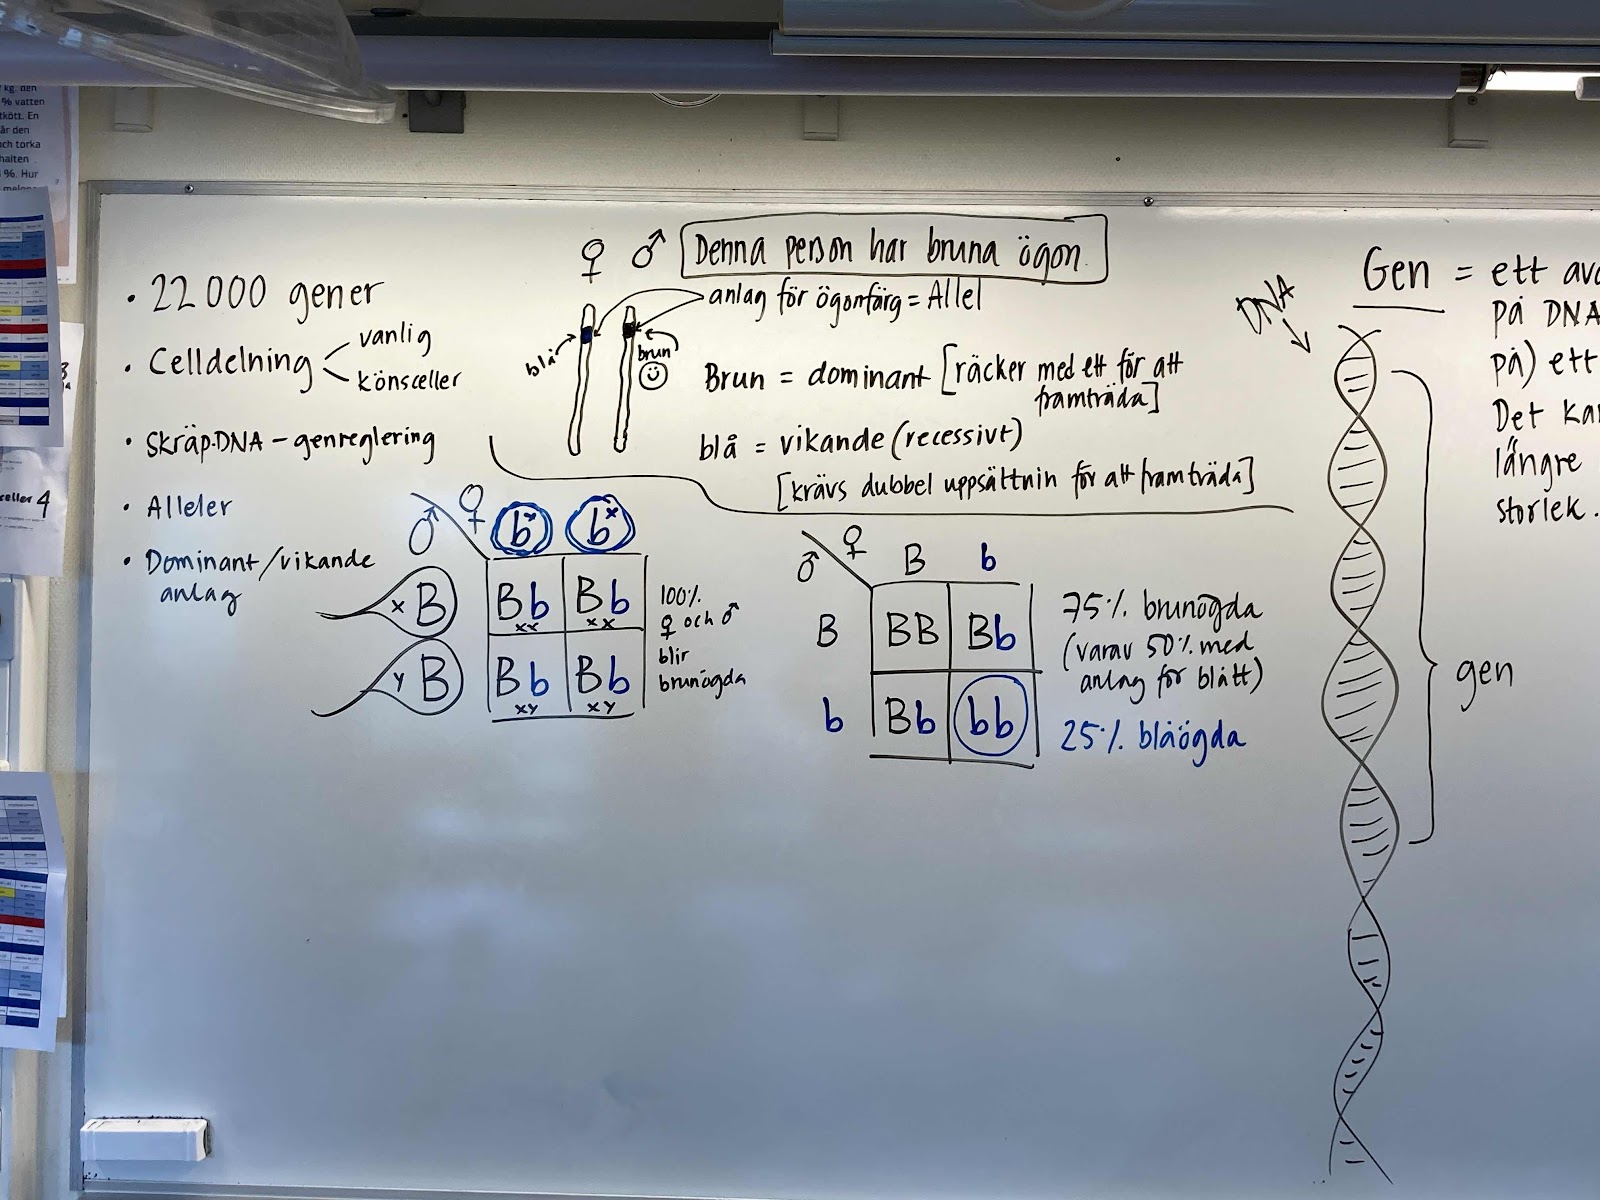 kg. den
% vatten
tkött. En
år den
och torka
halten
%. Hur
celler 4
• 22 000 gener
• Celldelning
vanlig
könsceller
• Skräp-DNA – genreglering
• Alleler
• Dominant/vikande
anlag
♀ ♂
Denna person har bruna ögon.
anlag för ögonfärg = Allel
blå
brun
Brun = dominant [räcker med ett för att
framträda]
blå = vikande (recessivt)
[krävs dubbel uppsättnin för att framträda]
♂ ♀ b^x b^x
x B Bb xx Bb xx
y B Bb xy Bb xy
100%
♀ och ♂
blir
brunögda
♂ ♀ B b
B BB Bb
b Bb bb
75% brunögda
(varav 50% med
anlag för blått)
25% blåögda
DNA
gen
Gen = ett
på DNA
på) ett
Det
längre
storlek.